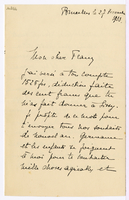 Bruxelles le 27 Décembre
Mon cher Franz
J'ai versé à ton compte
1525 frs, déduction faite
des cent francs que tu
m'as fait donner à
Je profite de ce mot pour
t'envoyer tous nos souhaits
de nouvel an. Germaine
et les enfants se joignent
à moi pour te souhaiter
mille choses agréables et